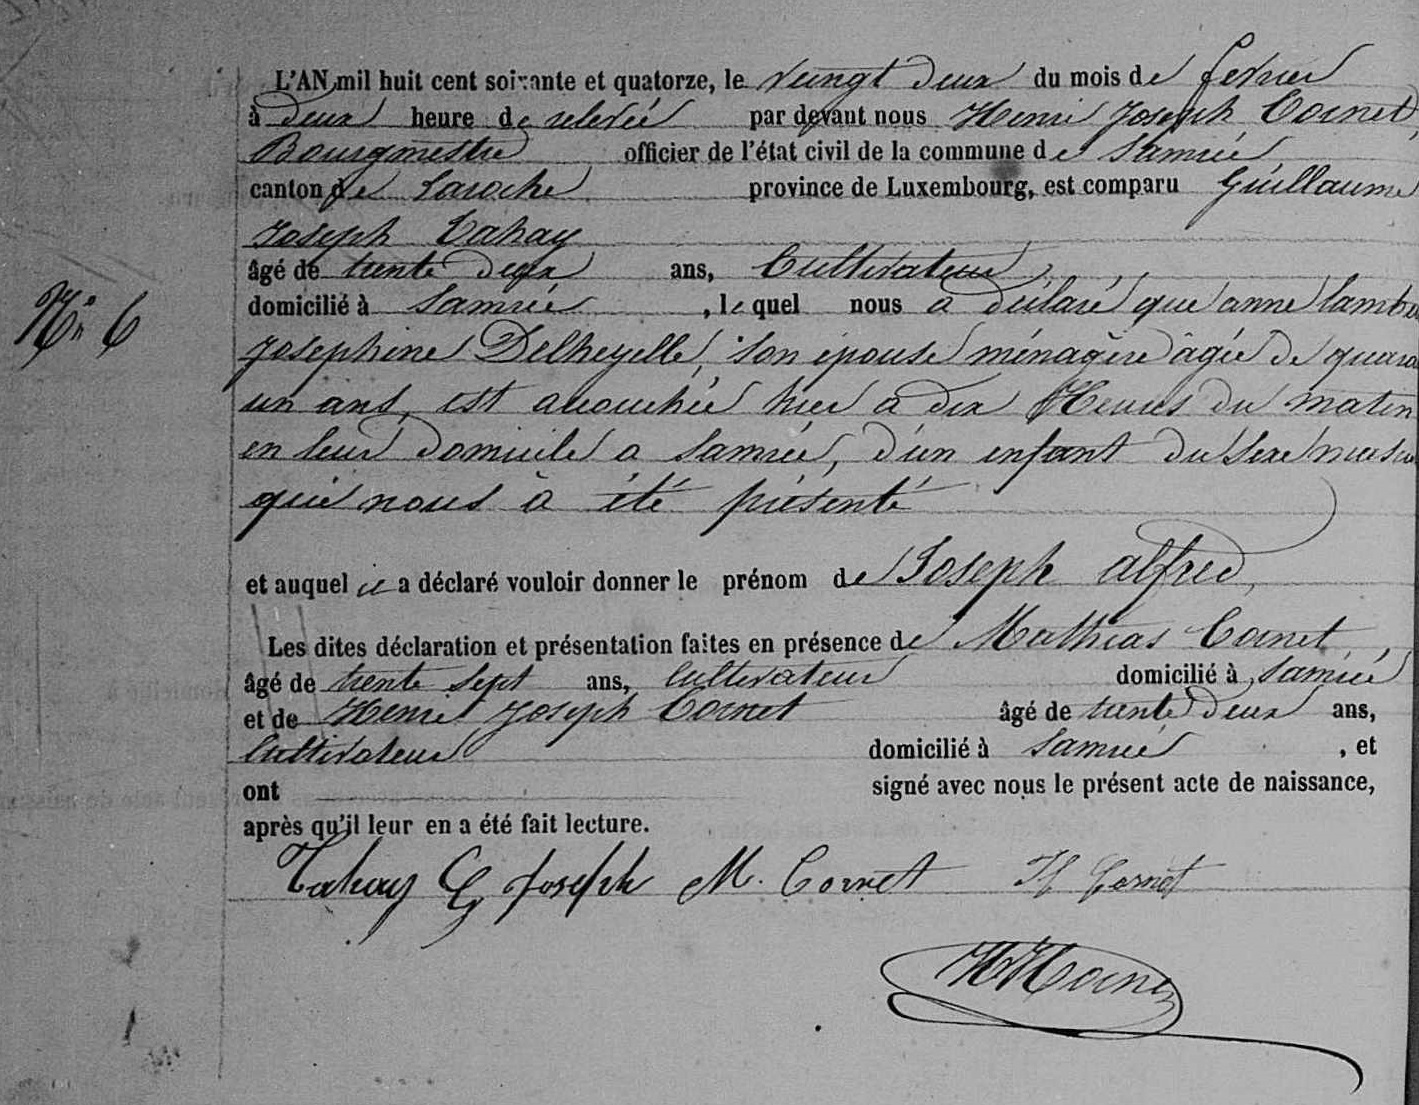 L'AN mil huit cent soixante et quatorze, le vingt deux du mois de fevrier
à deux heure de relevée par devant nous Henri Joseph Cornet,
Bourgmestre officier de l'état civil de la commune de Samrée,
canton de Laroche province de Luxembourg, est comparu Guillaume
Joseph Tahay
âgé de trente deux ans, Cultivateur,
domicilié à Samrée, lequel nous a déclaré que anne lamb
N° 6
Josephine Delheyelle, son épouse ménagère âgée de quara
un ans, est accouchée hier à dix Heures du matin
en leur domicile a Samrée, d'un enfant du sexe mascu
qui nous à été présenté
et auquel il a déclaré vouloir donner le prénom de Joseph alfred,
Les dites déclaration et présentation faites en présence de Mathias Cornet,
âgé de trente sept ans, Cultivateur domicilié à Samrée
et de Henri Joseph Cornet âgé de trente deux ans,
Cultivateur domicilié à Samrée, et
ont signé avec nous le présent acte de naissance,
après qu'il leur en a été fait lecture.
Tahay G Joseph M. Cornet H Cornet